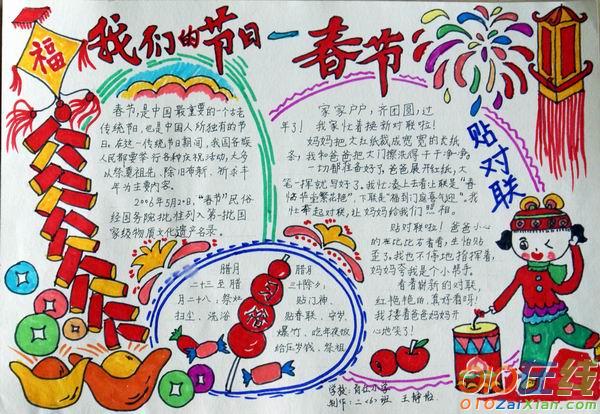 我们的节日一春节
福
春节,是中国最重要的一个古老
传统节日,也是中国人所独有的节
日。在这一传统节日期间,我国各族
人民都要举行各种庆祝活动,大多
以祭奠祖先、除旧布新、祈求丰
年为主要内容。
2006年5月20日,“春节”民俗
经国务院批准列入第一批国
家级物质文化遗产名录。
贴对联
家家户户,齐团圆,过
年了!我家忙着换新对联啦!
妈妈把大红纸裁成宽宽的长纸
条,我和爸爸把大门擦洗得干干净净,
一切都准备好了。爸爸展开红纸,大
笔一挥就写好了。我忙凑上去看上联是“春
华堂繁花艳”,下联是“福到门庭喜气盈”。我
忙举起对联,让妈妈给我们照相。
贴对联啦!爸爸小心
的在比比方看看,生怕贴
歪了。我也不停地指挥着,
妈妈夸我是个小帮手。
看着崭新的对联,
红艳艳的,真好看呀!
我搂着爸爸妈妈开
心地笑了!
腊月
二十三至腊
月二十八:祭灶
扫尘、洗浴
风俗
腊月
三十除夕:
贴门神、
贴春联、守岁、
爆竹、吃年夜饭
给压岁钱、祭祖
学校:育红小学
制作:二<6>班 王静
010在线
010ZaiXian.com